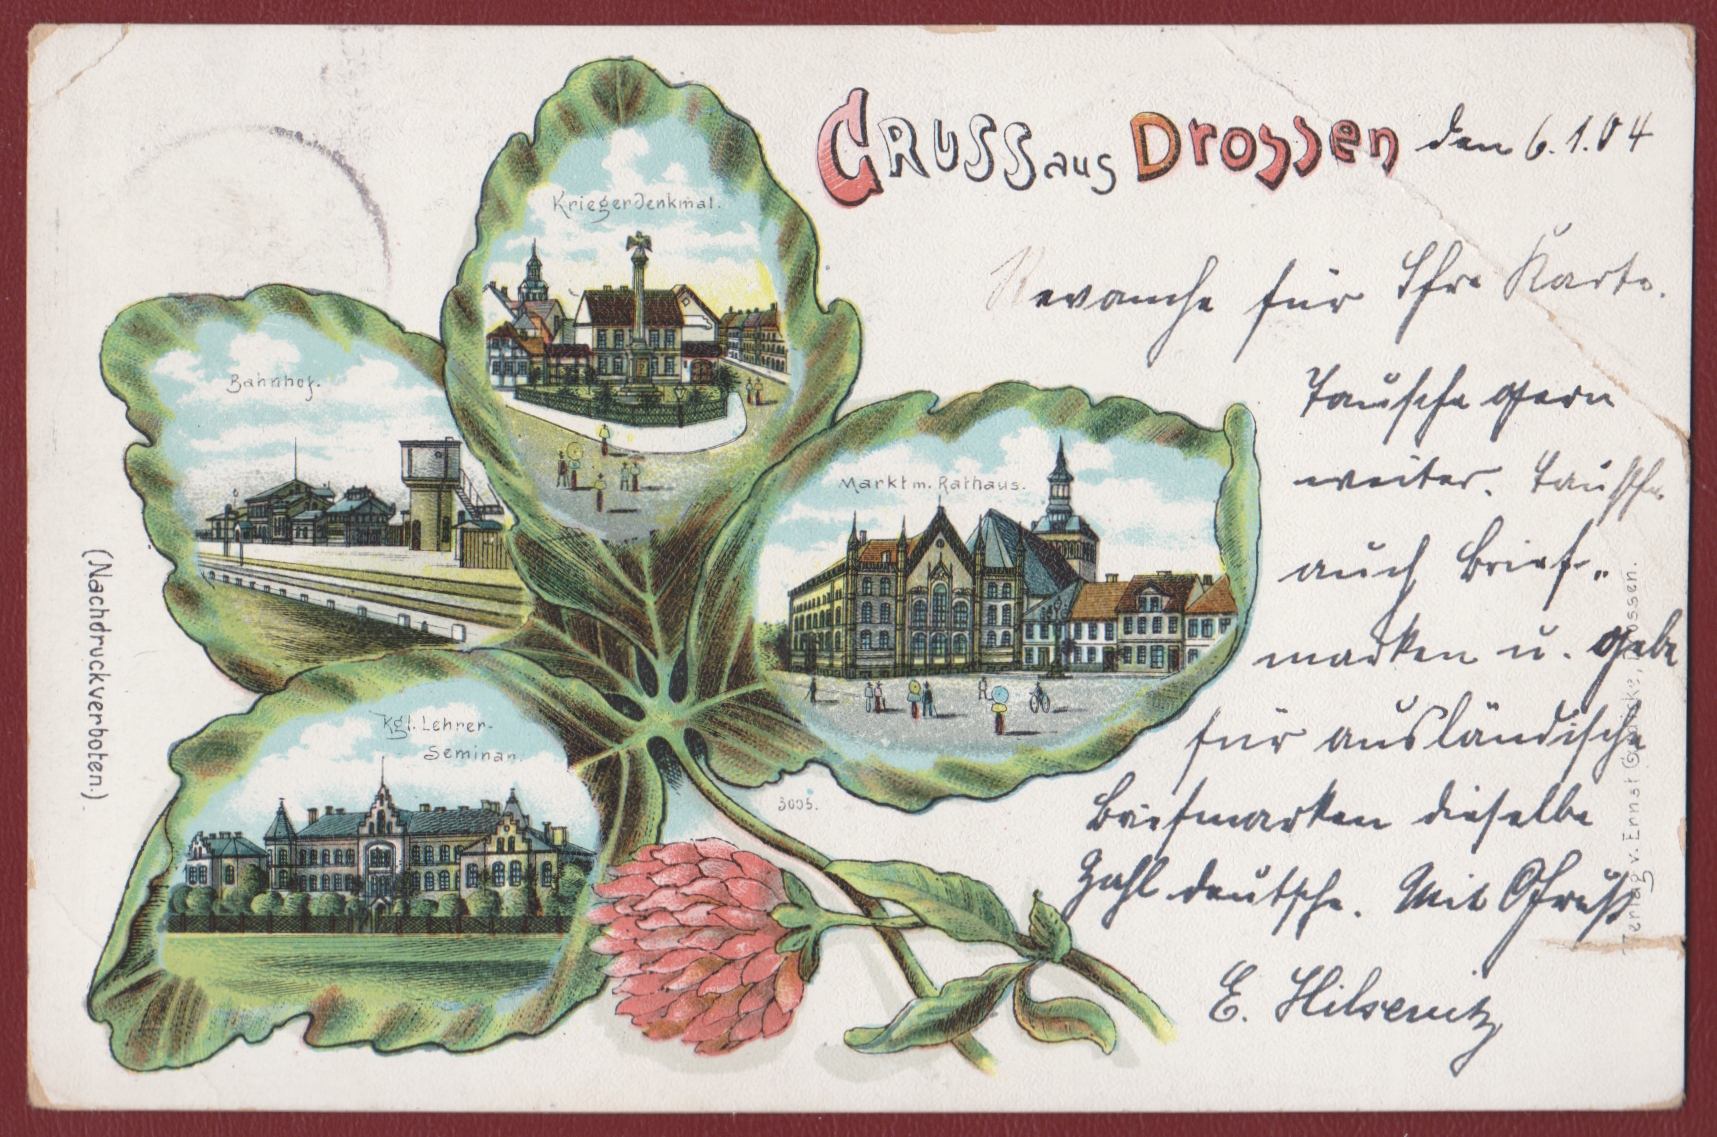 Gruss aus Drossen den 6.1.04
Kriegerdenkmal.
Bahnhof.
Markt m. Rathaus.
Kgl. Lehrer-
Seminar.
3005.
(Nachdruck verboten.)
Revanche für Ihre Karte.
Tausche gern
weiter. Tausche
auch Brief-
marken u. gebe
für ausländische
Briefmarken dieselbe
Zahl deutsche. Mit Gruß
E.
Verlag v. Ernst Drossen.